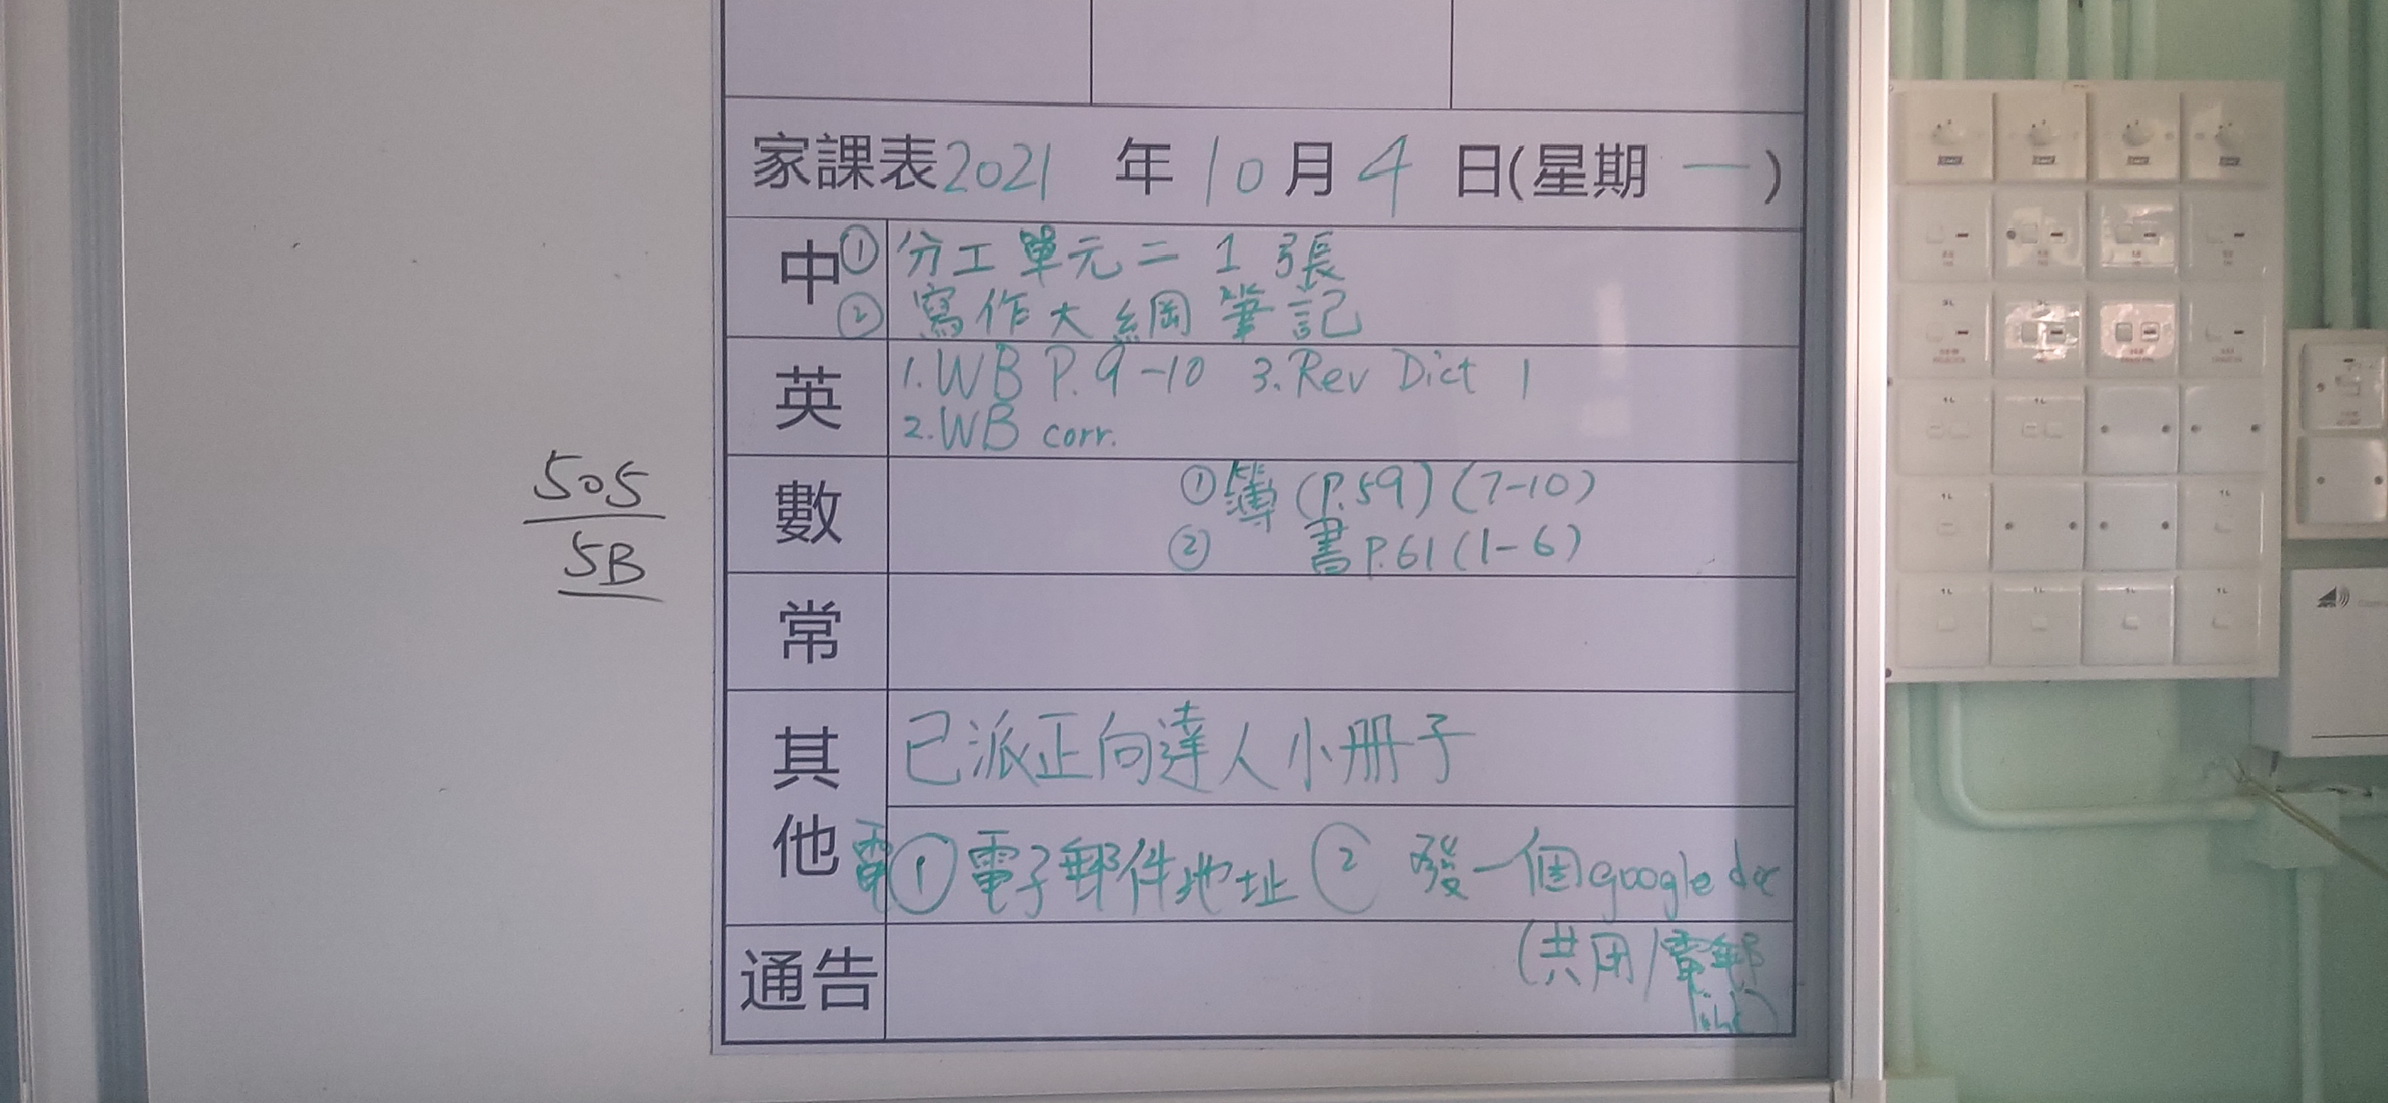 家課表2021 年 10 月 4 日(星期 一)
中 ① 分工單元二 1 張
② 寫作大綱筆記
英 1.WB P.9-10 3.Rev Dict 1
2.WB corr.
數 ①簿 (P.59) (7-10)
② 書P.61 (1-6)
常
其他 已派正向達人小冊子
電①電子郵件地址 ② 發一個google doc
通告 (共用/電郵
link)
505
5B